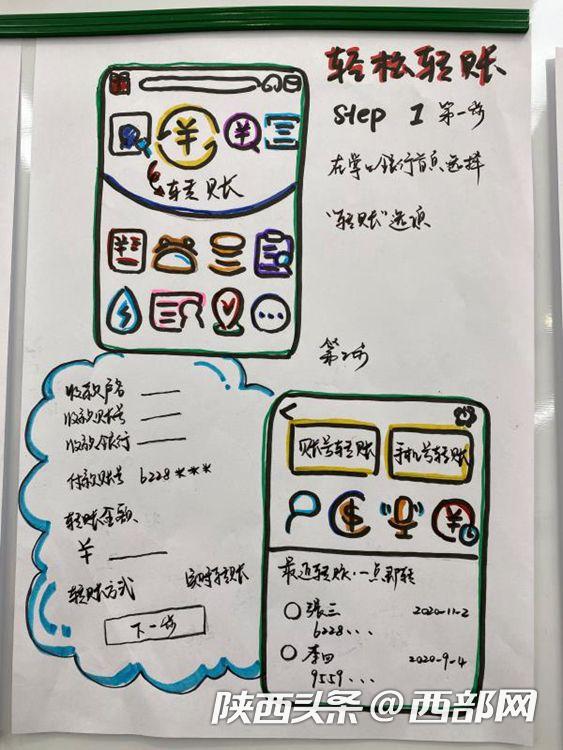 轻松转账
Step 1 第一步
在掌上银行首页选择
"转账"选项
¥
¥
转账
¥
第2步
收款户名
收款账号
收款银行
付款账号 6228***
转账金额
¥
转账方式 实时转账
下一步
账号转账
手机号转账
$
¥
最近转账,一点即转
张三 2020-11-2
6228...
李四 2020-9-4
9559...
陕西头条@西部网